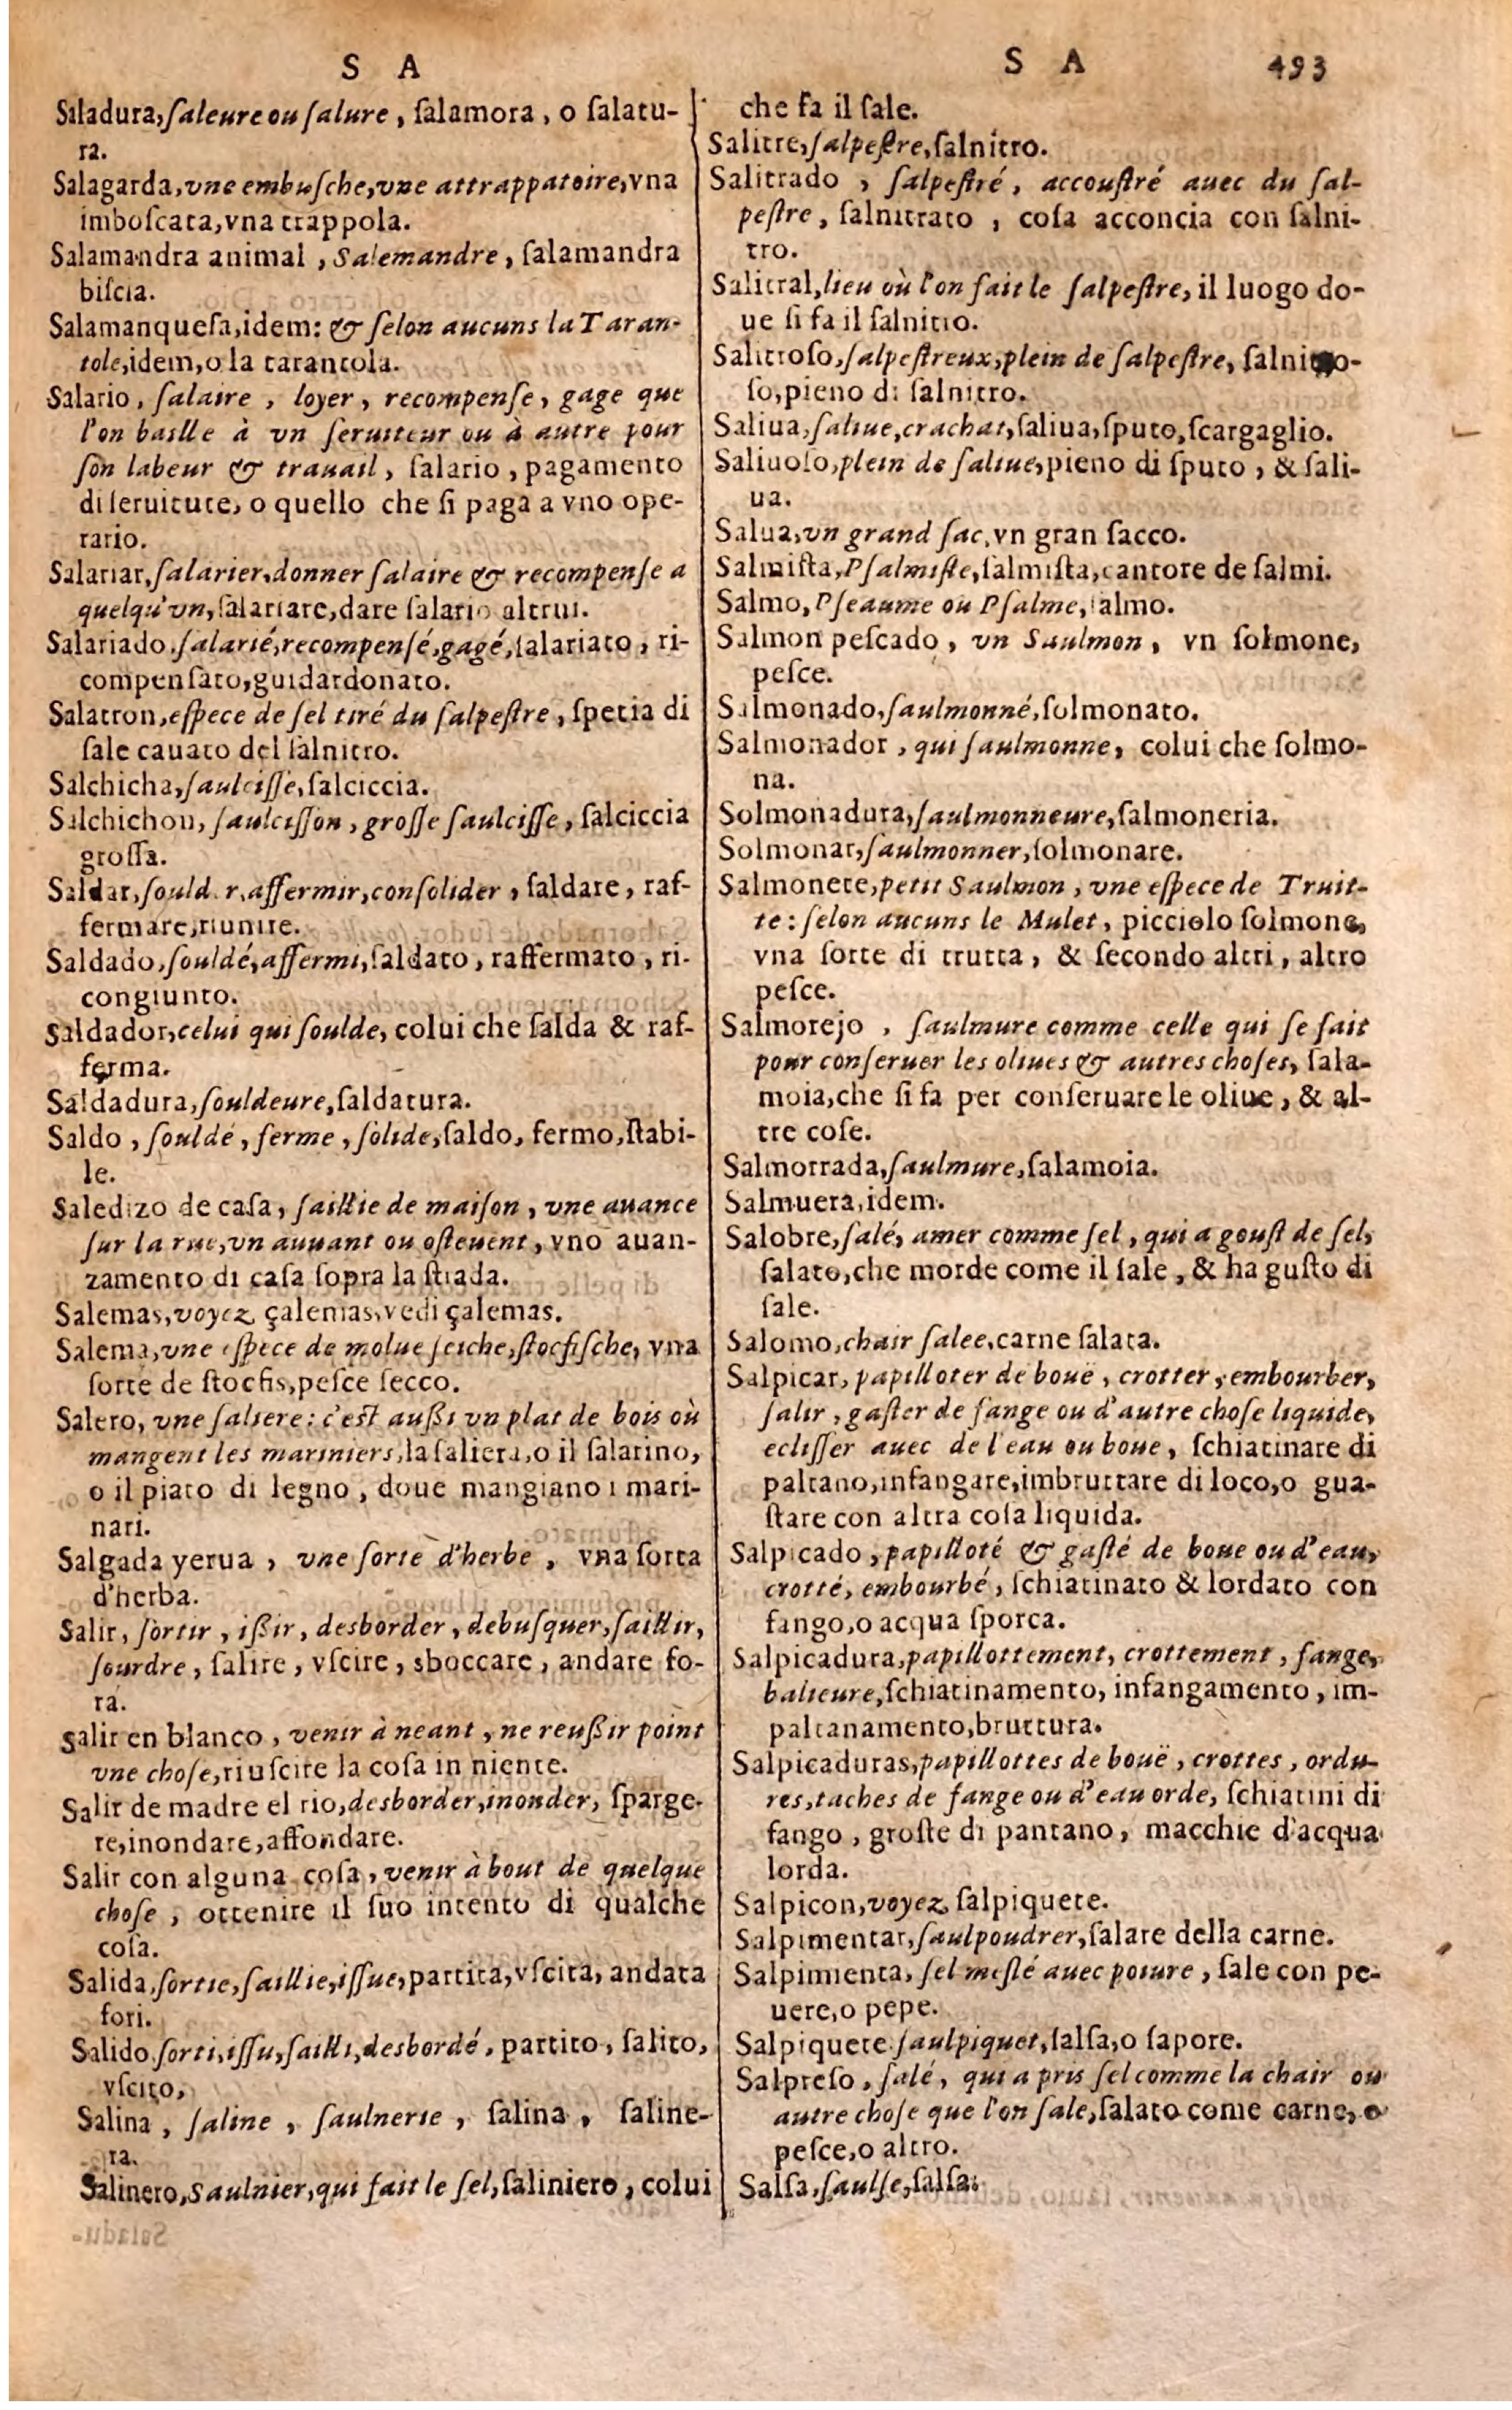 S A
Saladura, ſaleure ou ſalure, ſalamora, o ſalatu-
ra.
Salagarda, vne embuſche, vne attrappatoire, vna
imboſcata, vna trappola.
Salamandra animal, Salemandre, ſalamandra
biſcia.
Salamanqueſa, idem: & ſelon aucuns la Taran-
tole, idem, o la tarantola.
Salario, ſalaire, loyer, recompenſe, gage que
l'on baille à vn ſeruiteur ou à autre pour
ſon labeur & trauail, ſalario, pagamento
di ſeruitute, o quello che ſi paga a vno ope-
rario.
Salariar, ſalarier, donner ſalaire & recompenſe a
quelqu'vn, ſalariare, dare ſalario altrui.
Salariado, ſalarié, recompenſé, gagé, ſalariato, ri-
compenſato, guidardonato.
Salatron, eſpece de ſel tiré du ſalpeſtre, ſpetia di
ſale cauato del ſalnitro.
Salchicha, ſaulciſſe, ſalciccia.
Salchichon, ſaulciſſon, groſſe ſaulciſſe, ſalciccia
groſſa.
Saldar, ſoulder, affermir, conſolider, ſaldare, raf-
fermare, riunire.
Saldado, ſouldé, affermi, ſaldato, raffermato, ri-
congiunto.
Saldador, celui qui ſoulde, colui che ſalda & raf-
ferma.
Saldadura, ſouldeure, ſaldatura.
Saldo, ſouldé, ferme, ſolide, ſaldo, fermo, ſtabi-
le.
Saledizo de caſa, ſaillie de maiſon, vne auance
ſur la rue, vn auuant ou oſteuent, vno auan-
zamento di caſa ſopra la ſtrada.
Salemas, voyez çalemas, vedi çalemas.
Salema, vne eſpece de molue ſeiche, ſtocfiſche, vna
ſorte de ſtocfis, peſce ſecco.
Salero, vne ſaliere: c'est außi vn plat de bois où
mangent les mariniers, la ſaliera, o il ſalarino,
o il piato di legno, doue mangiano i mari-
nari.
Salgada yerua, vne ſorte d'herbe, vna ſorta
d'herba.
Salir, ſortir, ißir, desborder, debuſquer, ſaillir,
ſourdre, ſalire, vſcire, sboccare, andare fo-
ra.
Salir en blanco, venir à neant, ne reußir point
vne choſe, riuſcire la coſa in niente.
Salir de madre el rio, desborder, inonder, ſparge-
re, inondare, affondare.
Salir con alguna coſa, venir à bout de quelque
choſe, ottenire il ſuo intento di qualche
coſa.
Salida, ſortie, ſaillie, iſſue, partita, vſcita, andata
fori.
Salido, ſorti, iſſu, ſailli, desbordé, partito, ſalito,
vſcito,
Salina, ſaline, ſaulnerie, ſalina, ſaline-
ra.
Salinero, Saulnier, qui fait le ſel, ſaliniero, colui
S A 493
che fa il ſale.
Salitre, ſalpeſtre, ſalnitro.
Salitrado, ſalpeſtré, accouſtré auec du ſal-
peſtre, ſalnitrato, coſa acconcia con ſalni-
tro.
Salitral, lieu où l'on fait le ſalpeſtre, il luogo do-
ue ſi fa il ſalnitro.
Salitroſo, ſalpeſtreux, plein de ſalpeſtre, ſalnitro-
ſo, pieno di ſalnitro.
Saliua, ſaliue, crachat, ſaliua, ſputo, ſcargaglio.
Saliuoſo, plein de ſaliue, pieno di ſputo, & ſali-
ua.
Salua, vn grand ſac, vn gran ſacco.
Salmiſta, Pſalmiſte, ſalmiſta, cantore de ſalmi.
Salmo, Pſeaume ou Pſalme, ſalmo.
Salmon peſcado, vn Saulmon, vn ſolmone,
peſce.
Salmonado, ſaulmonné, ſolmonato.
Salmonador, qui ſaulmonne, colui che ſolmo-
na.
Solmonadura, ſaulmonneure, ſalmoneria.
Solmonar, ſaulmonner, ſolmonare.
Salmonete, petit Saulmon, vne eſpece de Truit-
te: ſelon aucuns le Mulet, picciolo ſolmone,
vna ſorte di trutta, & ſecondo altri, altro
peſce.
Salmorejo, ſaulmure comme celle qui ſe fait
pour conſeruer les oliues & autres choſes, ſala-
moia, che ſi fa per conſeruare le oliue, & al-
tre coſe.
Salmorrada, ſaulmure, ſalamoia.
Salmuera, idem.
Salobre, ſalé, amer comme ſel, qui a gouſt de ſel,
ſalato, che morde come il ſale, & ha guſto di
ſale.
Salomo, chair ſalee, carne ſalata.
Salpicar, papilloter de bouë, crotter, embourber,
ſalir, gaſter de fange ou d'autre choſe liquide,
ecliſſer auec de l'eau ou boue, ſchiatinare di
paltano, infangare, imbruttare di loco, o gua-
ſtare con altra coſa liquida.
Salpicado, papilloté & gaſté de boue ou d'eau,
crotté, embourbé, ſchiatinato & lordato con
fango, o acqua ſporca.
Salpicadura, papillottement, crottement, fange,
balieure, ſchiatinamento, infangamento, im-
paltanamento, bruttura.
Salpicaduras, papillottes de bouë, crottes, ordu-
res, taches de fange ou d'eau orde, ſchiatini di
fango, groſte di pantano, macchie d'acqua
lorda.
Salpicon, voyez ſalpiquete.
Salpimentar, ſaulpoudrer, ſalare della carne.
Salpimienta, ſel meſlé auec poiure, ſale con pe-
uere, o pepe.
Salpiquete ſaulpiquet, ſalſa, o ſapore.
Salpreſo, ſalé, qui a pris ſel comme la chair ou
autre choſe que l'on ſale, ſalato come carne, o
peſce, o altro.
Salſa, ſaulſe, ſalſa.